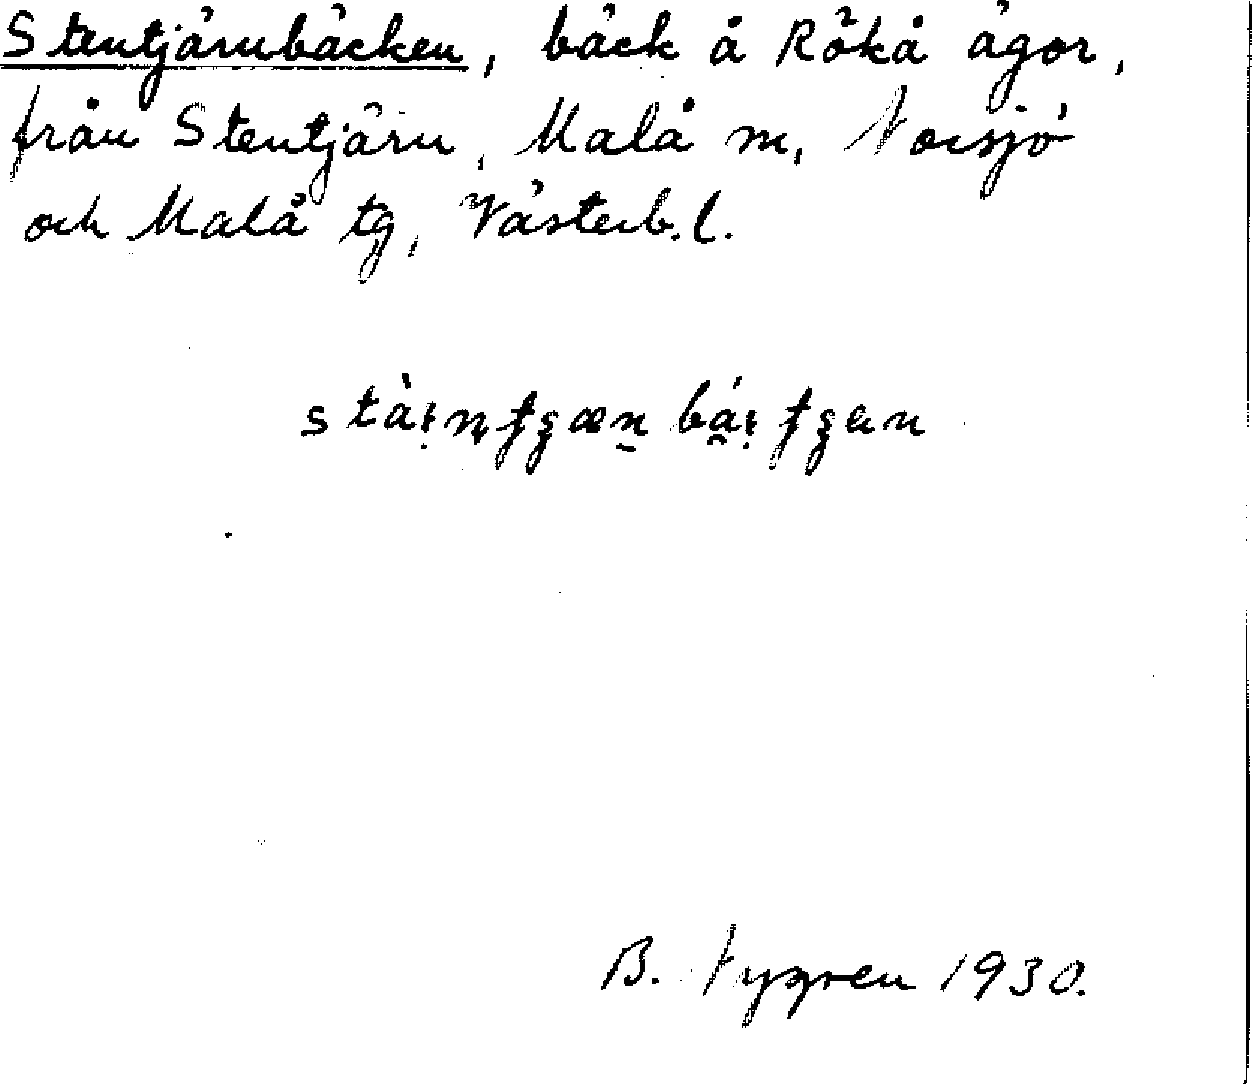 Stentjärnbäcken, bäck å Rökå ägor,
från Stentjärn, Malå m, Norsjö
och Malå tg, Västerb. l.
B. Nygren 1930.